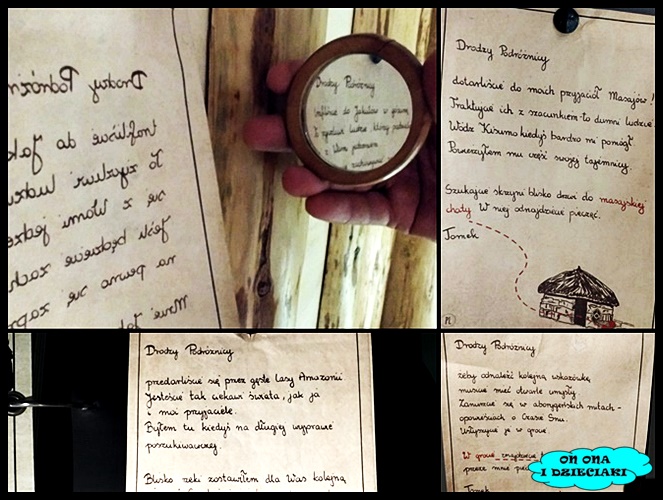 Drodzy Podróżn
trafiliście do Jak
to życzliwi ludzi
się z Wami jedze
Jeśli będziecie zach
na pewno się zapr
Mnie
Drodzy Podróżnicy
trafiliście do Jakutów w
to życzliwi ludzie, którzy
z Wami jedzeniem
Drodzy Podróżnicy
dotarliście do moich przyjaciół Masajów!
Traktujcie ich z szacunkiem to dumni ludzie.
Wódz Kisumo kiedyś bardzo mi pomógł.
Powierzyłem mu część swojej tajemnicy.
Szukajcie skrzyni blisko drzwi do masajskiej
chaty. W niej odnajdziecie pieczęć.
Tomek
Drodzy Podróżnicy
przedarliście się przez gęste lasy Amazonii
Jesteście tak ciekawi świata, jak ja
i moi przyjaciele.
Byłem tu kiedyś na długiej wyprawie
poszukiwawczej.
Blisko rzeki zostawiłem dla Was kolejną
Drodzy Podróżnicy
żeby odnaleźć kolejną wskazówkę
musicie mieć otwarte umysły
Zanurzcie się w aborygeńskich mitach -
opowieściach o Czasie Snu.
Usłyszycie je w grocie.
W grocie znajdziecie
przeze mnie
Tomek
ON ONA
I DZIECIAKI